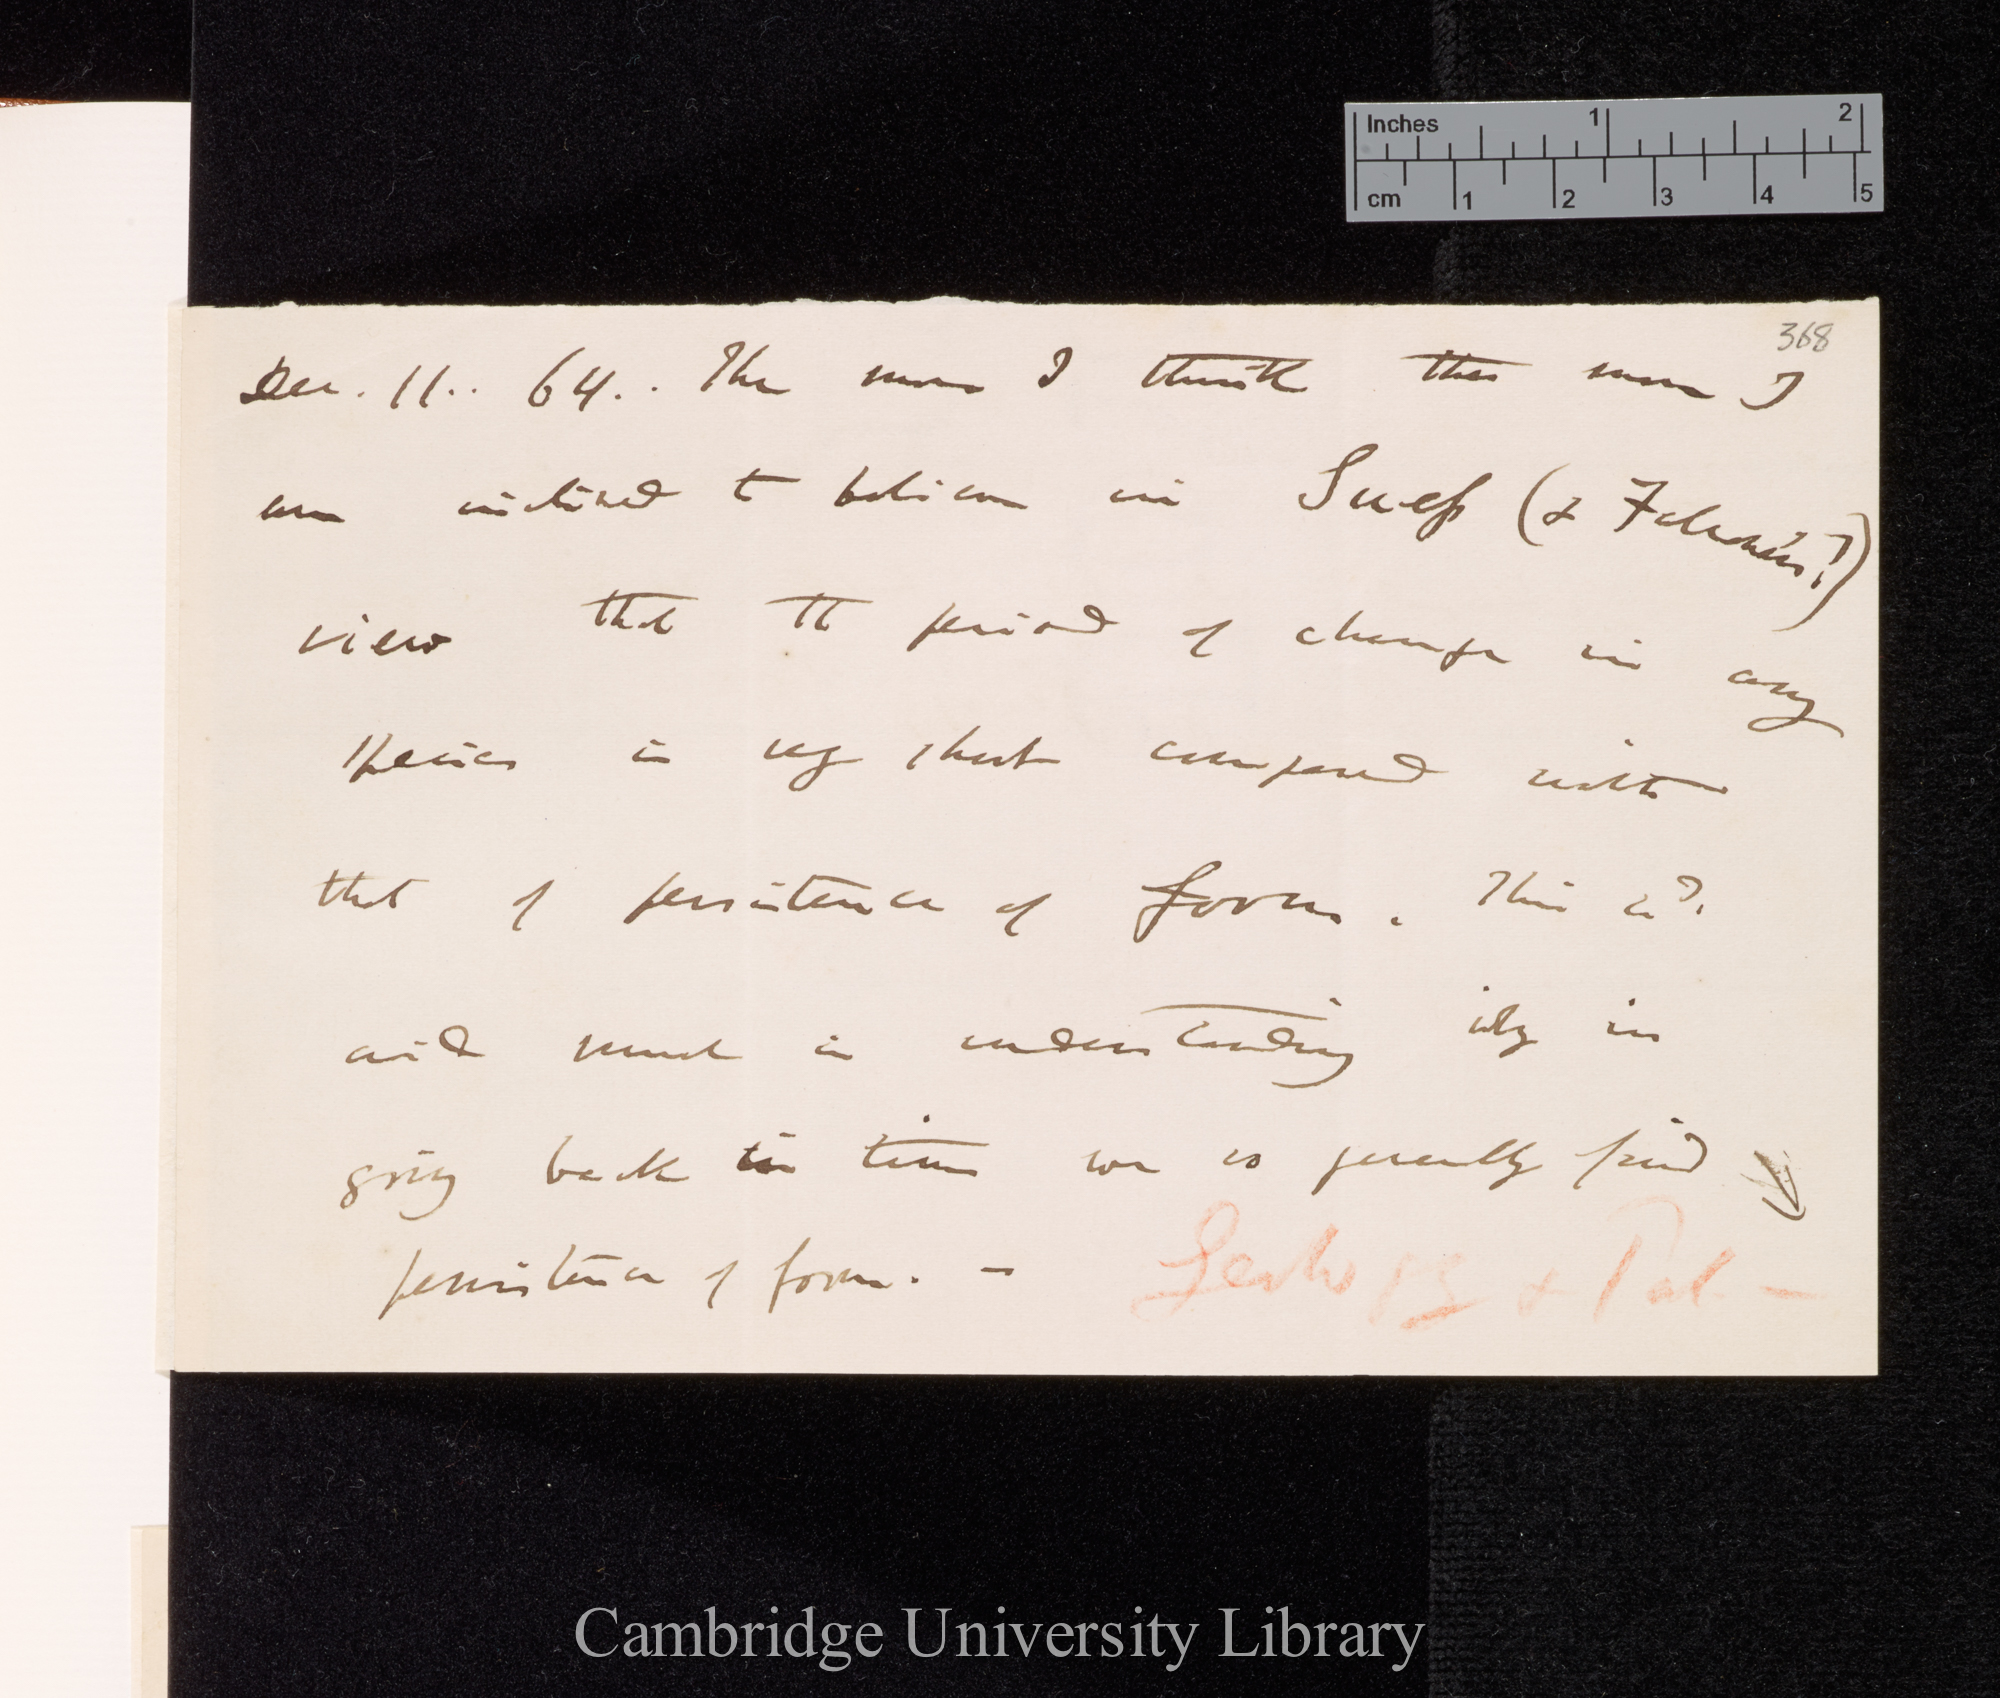 Inches 1 2
cm 1 2 3 4 5
368
Dec. 11.. 64.. The more I think the more I
am inclined to believe in Suess (& Falconer's?)
view that the period of change in any
species is very short compared with
that of persistence of form. This wd.
aid much in understanding why in
going back in time we so generally find
persistence of form. —
Geology & Pal. —
Cambridge University Library